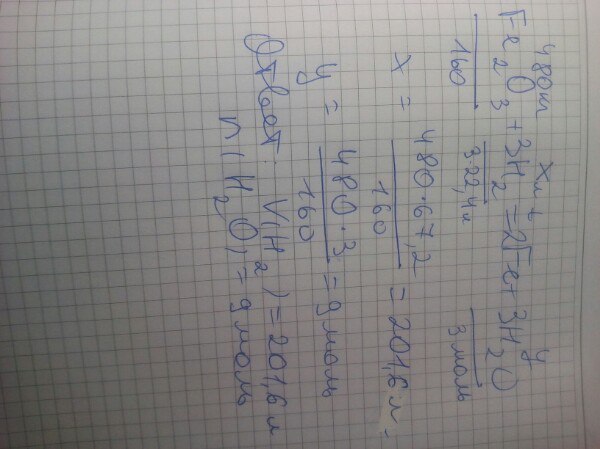 480г xл y
Fe2O3 + 3H2 t= 2Fe + 3H2O
160 3·22,4л 3 моль
x = 480·67,2 / 160 = 201,6 л.
y = 480·3 / 160 = 9 моль
Ответ: V(H2) = 201,6 л
n(H2O) = 9 моль